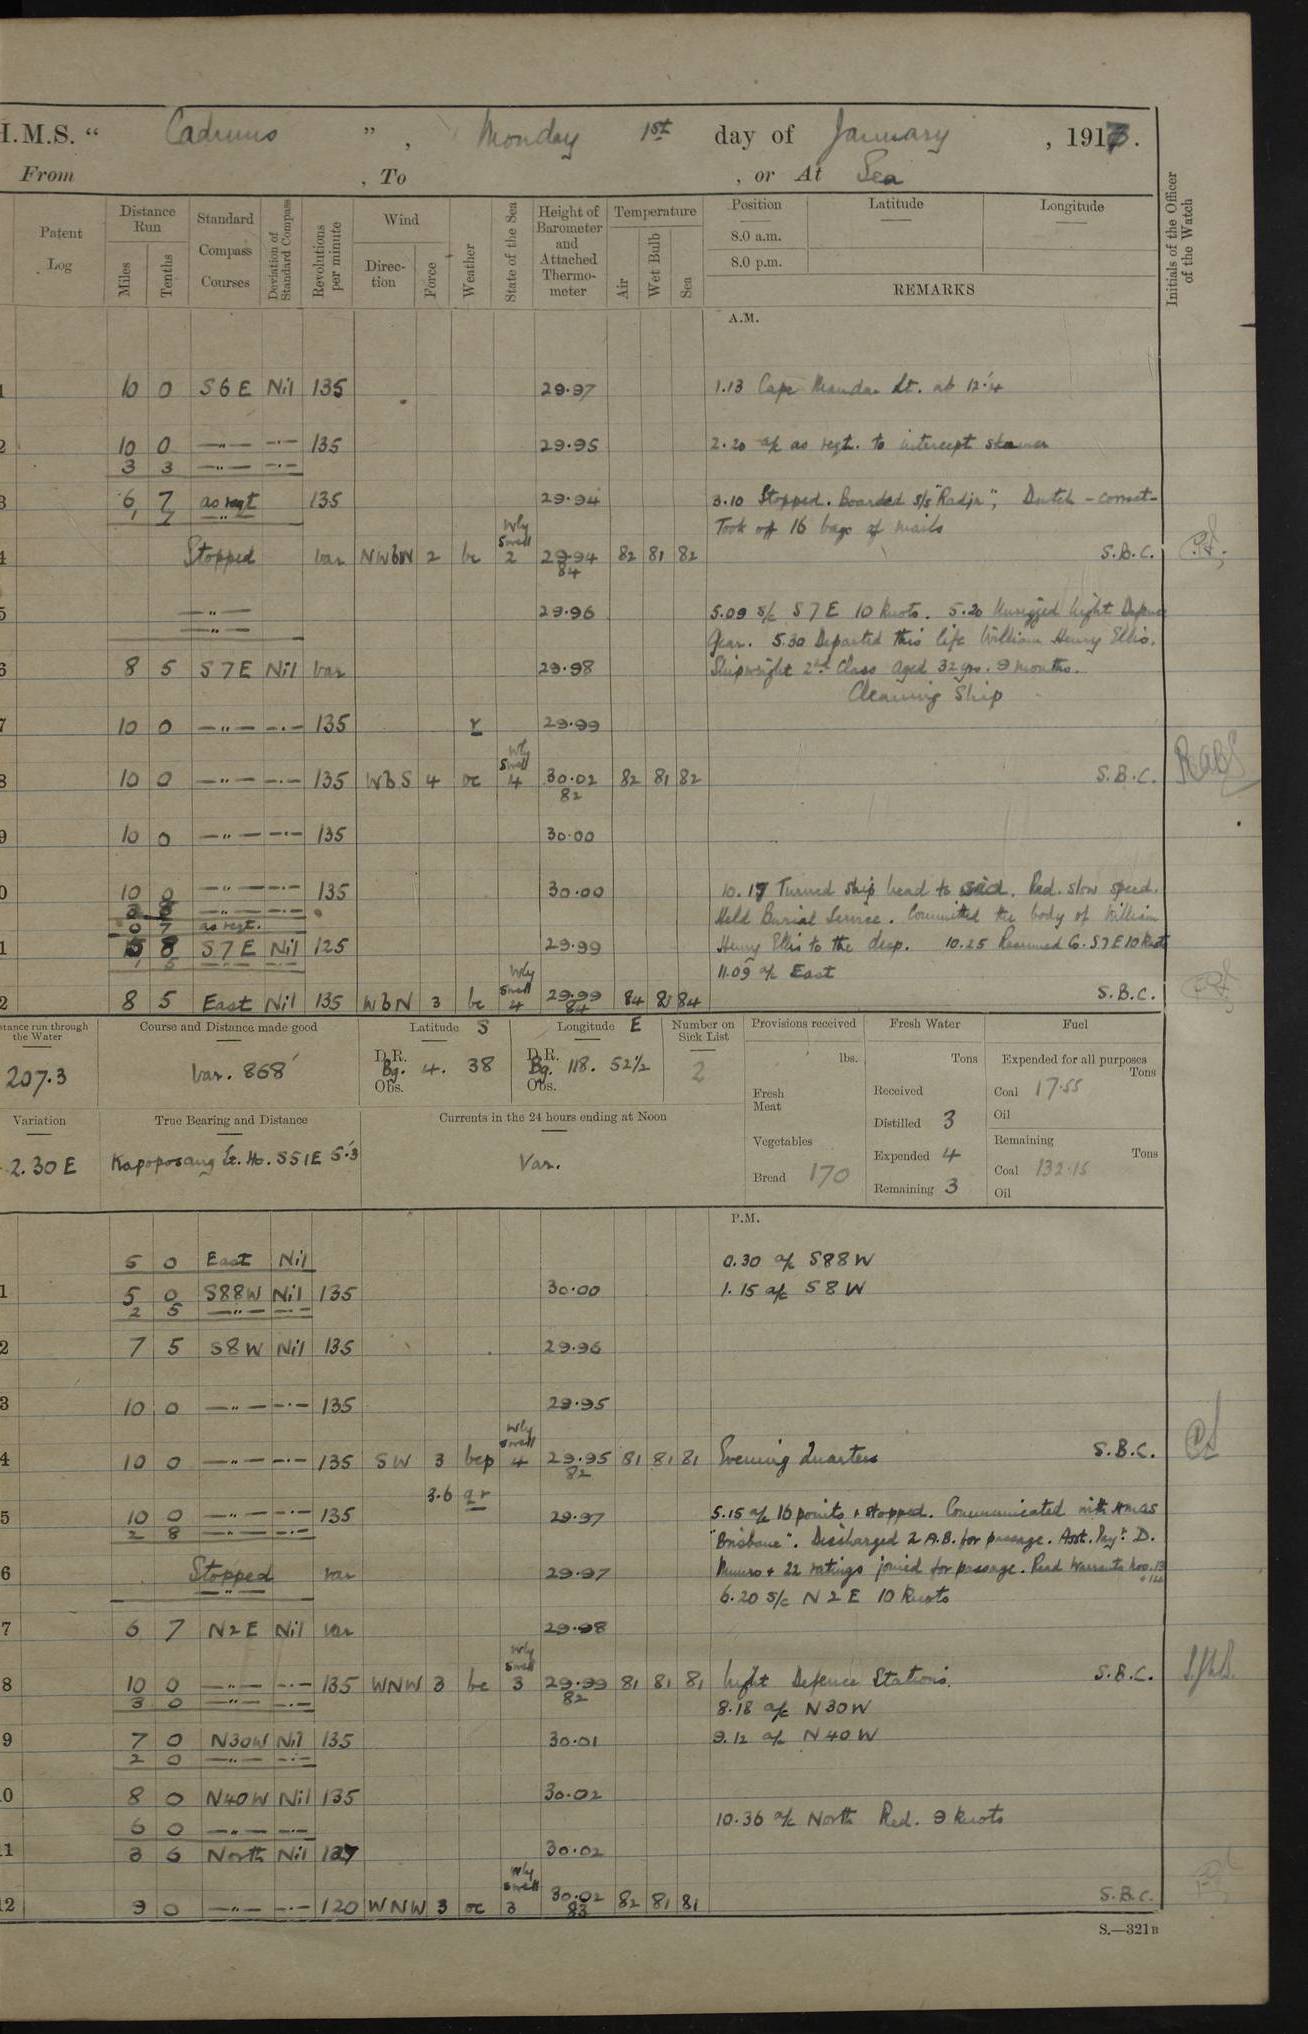 H.M.S. “ Cadmus ”, Monday 1st day of January, 1917.
From , To , or At Sea
Patent Log
Distance Run
Miles
Tenths
Standard Compass Courses
Deviation of Standard Compass
Revolutions per minute
Wind
Direction
Force
Weather
State of the Sea
Height of Barometer and Attached Thermometer
Temperature
Air
Wet Bulb
Sea
Position
Latitude
Longitude
8.0 a.m.
8.0 p.m.
REMARKS
Initials of the Officer of the Watch
A.M.
1 10 0 S6E Nil 135 29.97 1.13 Cape Mandar Lt. ab 12'.4
2 10 0 —"— —"— 135 29.95 2.20 a/c as reqt. to intercept steamer
3 3 —"— —"—
3 6 7 as reqt 135 29.94 3.10 Stopped. Boarded s/s "Radja", Dutch - correct -
—"— Took off 16 bags of mails
Wly Swell
4 Stopped var NWbW 2 bc 2 29.94 82 81 82 S.B.C.
84
5 —"— 29.96 5.09 s/c S7E 10 knots. 5.20 Unrigged Night Defence
—"— Gear. 5.30 Departed this life William Henry Ellis,
6 8 5 S7E Nil var 29.98 Shipwright 2nd Class aged 32 yrs. 9 months.
Cleaning Ship
7 10 0 —"— —"— 135 r 29.99
Wly Swell
8 10 0 —"— —"— 135 WbS 4 oc 4 30.02 82 81 82 S.B.C.
82
9 10 0 —"— —"— 135 30.00
0 10 0 —"— —"— 135 30.00 10.17 Turned ship head to wind. Red. slow speed.
—"— —"— Held Burial Service. Committed the body of William
0 7 as reqt.
1 5 8 S7E Nil 125 29.99 Henry Ellis to the deep. 10.25 Resumed Co. S7E 10 knots
1 5 —"— —"— 11.09 a/c East
Wly Swell
2 8 5 East Nil 135 WbN 3 bc 4 29.99 84 81 84 S.B.C.
84
Distance run through the Water
207.3
Course and Distance made good
Var. 868'
Latitude S
D.R.
Bg. 4. 38
Obs.
Longitude E
D.R.
Bg. 118. 52½
Obs.
Number on Sick List
2
Provisions received
lbs.
Fresh Meat
Vegetables
Bread 170
Fresh Water
Tons
Received
Distilled 3
Expended 4
Remaining 3
Fuel
Expended for all purposes
Tons
Coal 17.55
Oil
Remaining
Tons
Coal 132.15
Oil
Variation
2.30 E
True Bearing and Distance
Kapoposang Lt. Ho. S51E 5'.3
Currents in the 24 hours ending at Noon
Var.
P.M.
5 0 East Nil 0.30 a/c S88W
1 5 0 S88W Nil 135 30.00 1.15 a/c S8W
2 5 —"— —"—
2 7 5 S8W Nil 135 29.96
3 10 0 —"— —"— 135 29.95
Wly Swell
4 10 0 —"— —"— 135 SW 3 bcp 4 29.95 81 81 81 Evening Quarters S.B.C.
82
3.6 qr
5 10 0 —"— —"— 135 29.97 5.15 a/c 16 points & stopped. Communicated with HMAS
2 8 —"— —"— "Brisbane". Discharged 2 A.B. for passage. Asst. Payr. D.
6 Stopped var 29.97 Munro + 22 ratings joined for passage. Read Warrants Nos.
—"— 6.20 s/c N2E 10 knots
7 6 7 N2E Nil var 29.98
Wly Swell
8 10 0 —"— —"— 135 WNW 3 bc 3 29.99 81 81 81 Night Defence Stations. S.B.C.
82
3 0 —"— —"— 8.18 a/c N30W
9 7 0 N30W Nil 135 30.01 9.12 a/c N40W
2 0 —"— —"—
10 8 0 N40W Nil 135 30.02
6 0 —"— —"— 10.36 a/c North Red. 9 knots
11 3 6 North Nil 127 30.02
Wly Swell
12 9 0 —"— —"— 120 WNW 3 oc 3 30.02 82 81 81 S.B.C.
83
S.—321B